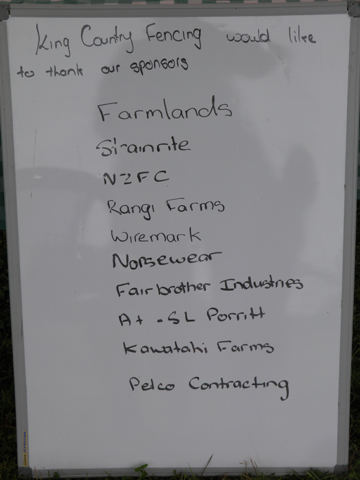 King Country Fencing would like
to thank our sponsors
Farmlands
Strainrite
NZFC
Rangi Farms
Wiremark
Norsewear
Fairbrother Industries
A+ SL Porritt
Kawatahi Farms
Pelco Contracting